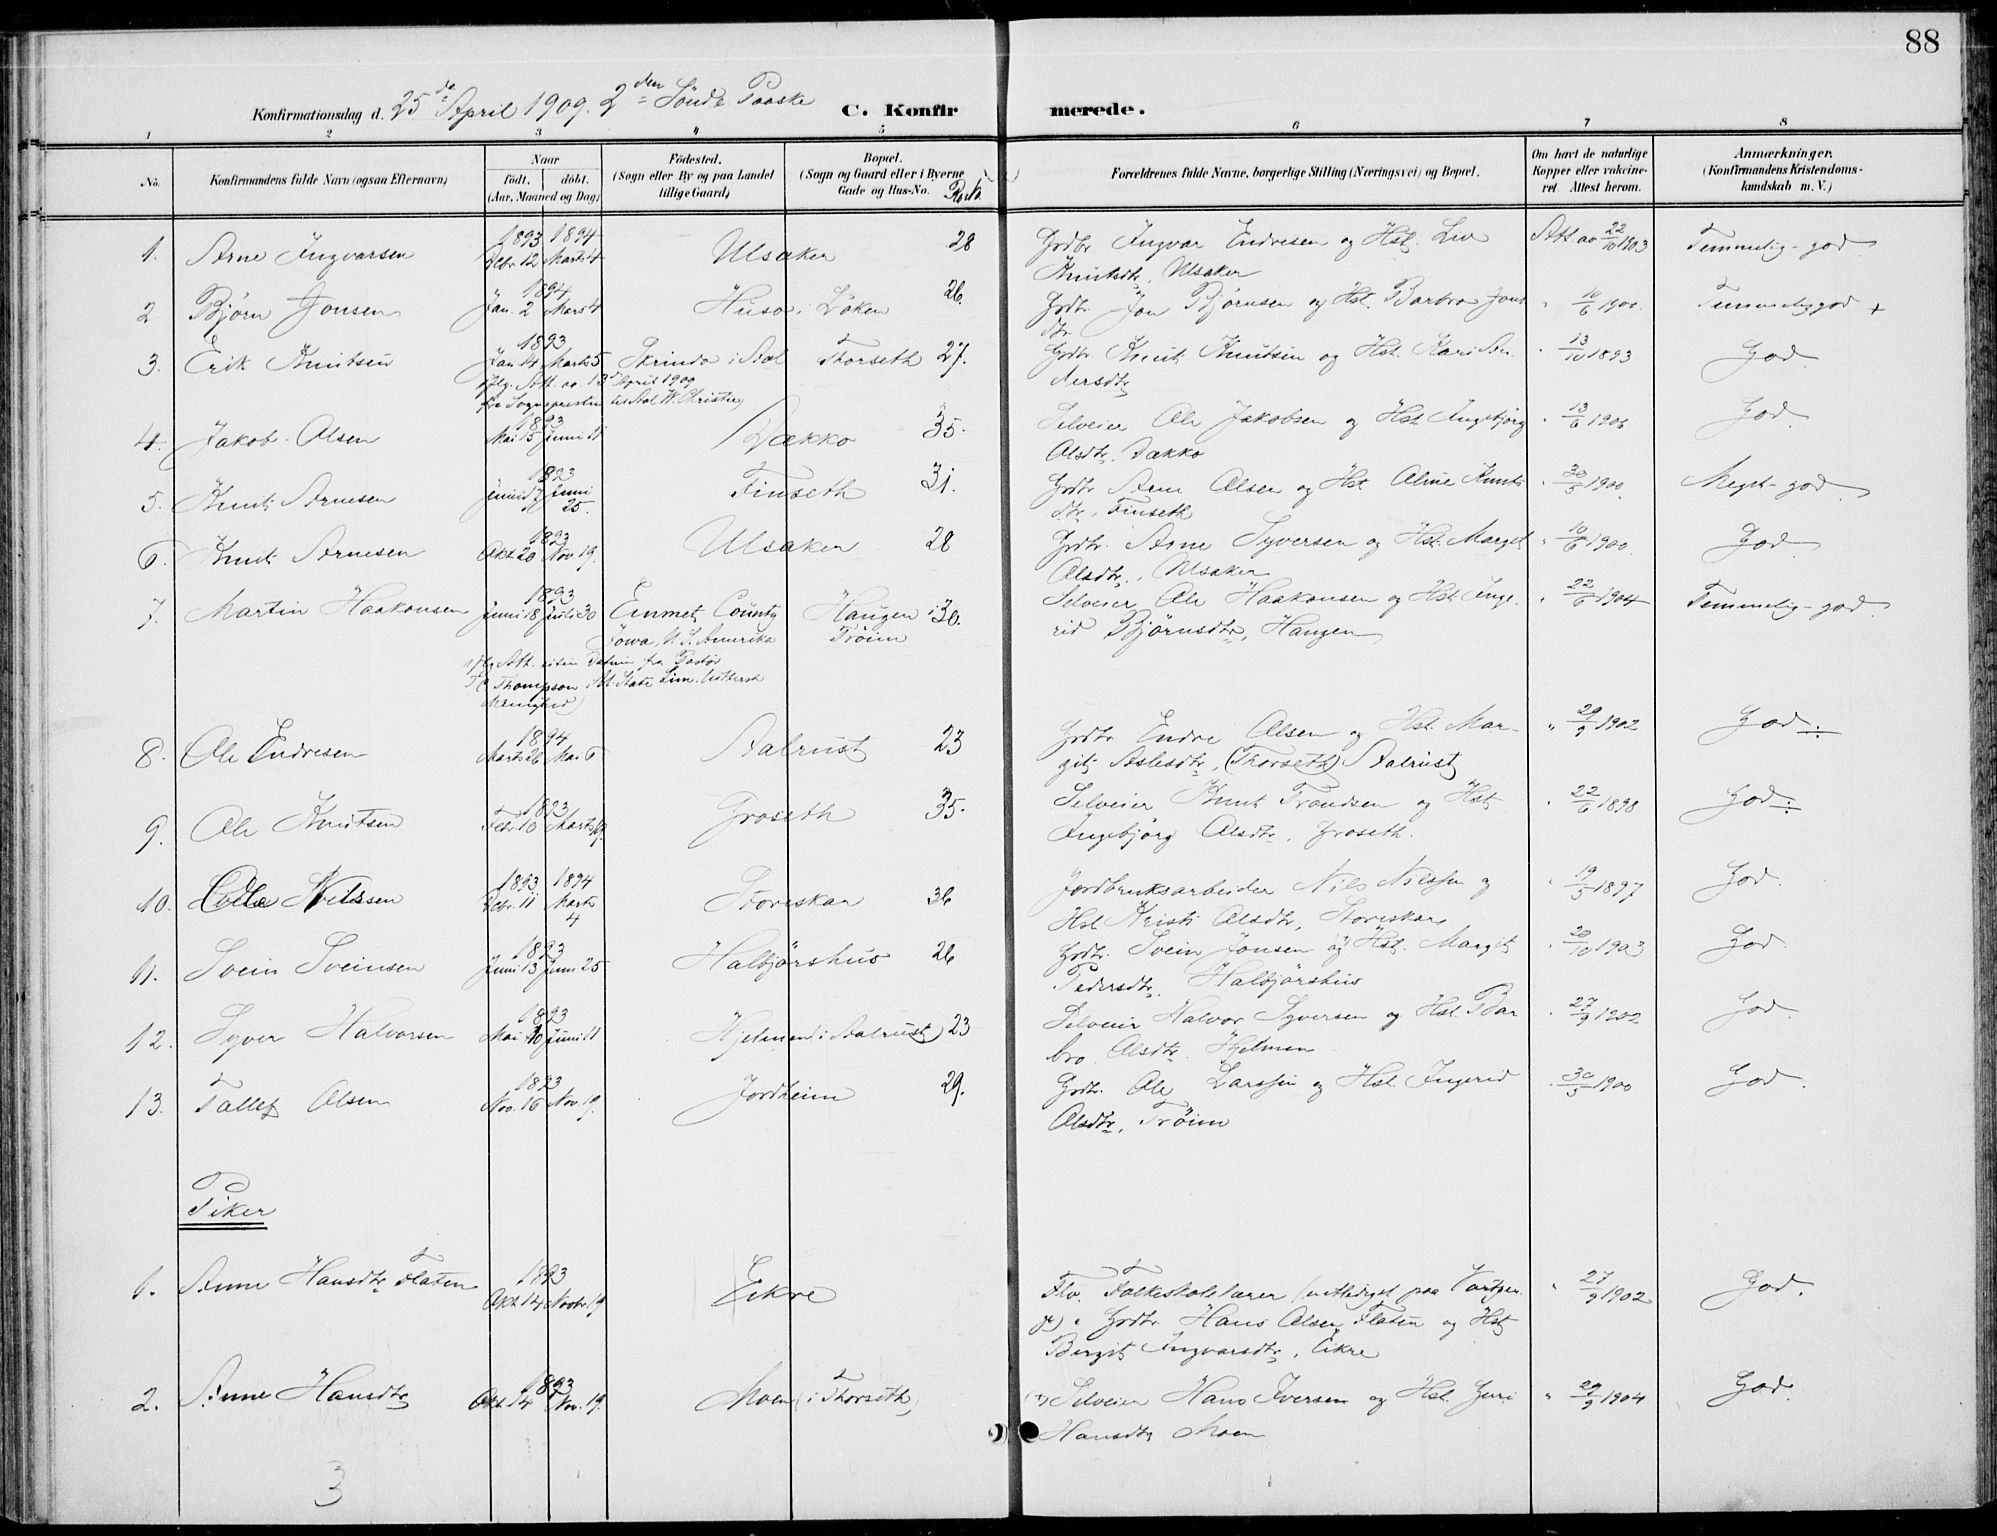 88
Konfirmationsdag d. 25de April 1909. 2den Sönd. Paaske
C. Konfirmerede.
1 2 3 4 5 6 7 8
No. Konfirmandens fulde Navn (ogsaa Efternavn) Naar födt, döbt. (Aar, Maaned og Dag) Födested. (Sogn eller By og paa Landet tillige Gaard) Bopæl. (Sogn og Gaard eller i Byerne Gade og Hus-No. Forældrenes fulde Navne, borgerlige Stilling (Næringsvei) og Bopæl. Om havt de naturlige Kopper eller vakcineret. Attest herom. Anmærkninger. (Konfirmandens Kristendomskundskab m. V.)
1. Arne Ingvarsen 1893 Dcbr. 12 1894 Marts 4 Ulsaker 28 Grdbr. Ingvar Endresen og Hst. Liv Att. av 22/10 1903 Temmelig-god
Knutsdtr, Ulsaker
2. Björn Jonsen 1894 Jan. 2 Mars 4 Huso i Löken 26. Grdbr. Jon Björnsen og Hst. Barbro Jons " 16/6 1900. Temmelig god +
dtr.
3. Erik Knutsen 1893 Jan 14 Marts 5 Skrindo i Aal Thorseth 27. Grdbr. Knut Knutsen og Hst. Kari An- " 13/10 1893 God
dersdtr
iflg. Att. av 13de April 1909
fra Sognepresten til Aal W. Christie)
4. Jakob Olsen 1893 Mai 15 Juni 11 Dekko 35. Selveier Ole Jakobsen og Hst. Ingebjörg " 13/6 1906 God
Olsdtr. Dækko
5. Knut Arnesen 1893 Juni 17 Juni 25. Finseth 31. Grdbr. Arne Olsen og Hst Oline Knuts " 30/5 1900. Meget-god
dtr., Finseth
6. Knut Arnesen 1893 Okt. 20 Nov. 19. Ulsaker 28 Grdbr. Arne Syversen og Hst. Margit " 10/6 1900. God
Olsdtr., Ulsaker
7. Martin Haakonsen 1893 Juni 18 Juli 30 Emmet County Haugen i 30. Selveier Ole Haakonsen og Hst. Inge- " 22/6 1904 Temmelig-god
Jowa, N. S. Amerika Tröim rid Björnsdtr, Haugen
iflg. Att. uten Datum fra Pastor
Thompson i State Line luthersk
Menighed)
8. Ole Endresen 1894 Marts 26 Mai 6 Aalrust 23 Grdbr. Endre Olsen og Hst. Mar- " 29/9 1902 God
git Aslesdtr, (Thorseth) Aalrust
9. Ole Knutsen 1893 Febr. 10 Marts 19. Groseth 35. Selveier Knut Trondsen og Hst " 22/6 1898 God
Ingebjörg Olsdtr, Groseth.
10. Nilssen 1893 Dcbr. 11 1894 Marts 4 Storeskar 36 Jordbruksarbeider Nils Nilssen og " 19/5 1897 God.
Hst. Kristi Olsdtr, Storeskar
11. Svein Sveinsen 1893 Juni 13 Juni 25 Halbjörshus 26 Grdbr. Svein Jonsen og Hst. Margit " 20/10 1903 God.
Pedersdtr. Halbjörshus
12. Syver Halvorsen 1893 Mai 10 Juni 11 Hjelmen (i Aalrust) 23 Selveier Halvor Syversen og Hst. Bar " 27/9 1902 God.
bro Olsdtr. Hjelmen
13. Tallef Olsen 1893 Nov. 16 Nov. 19. Jordheim 29. Grdbr. Ole Larssen og Hst. Ingerid " 30/5 1900 God.
Olsdtr, Tröim
Piker
1. Anne Hansdtr Flaten 1893 Okt. 14 Novbr. 19. Eikre Fhv. Folkeskolelærer " 27/9 1902 God.
Grdbr. Hans Olsen Flaten og Hst
Bergit Ingvarsdtr, Eikre
2. Anne Hansdtr 1893 Okt. 14 Nov. 19. Moen (i Thorseth) Selveier Hans Iversen og Hst. Guri " 29/9 1904 God.
Hansdtr Moen
3